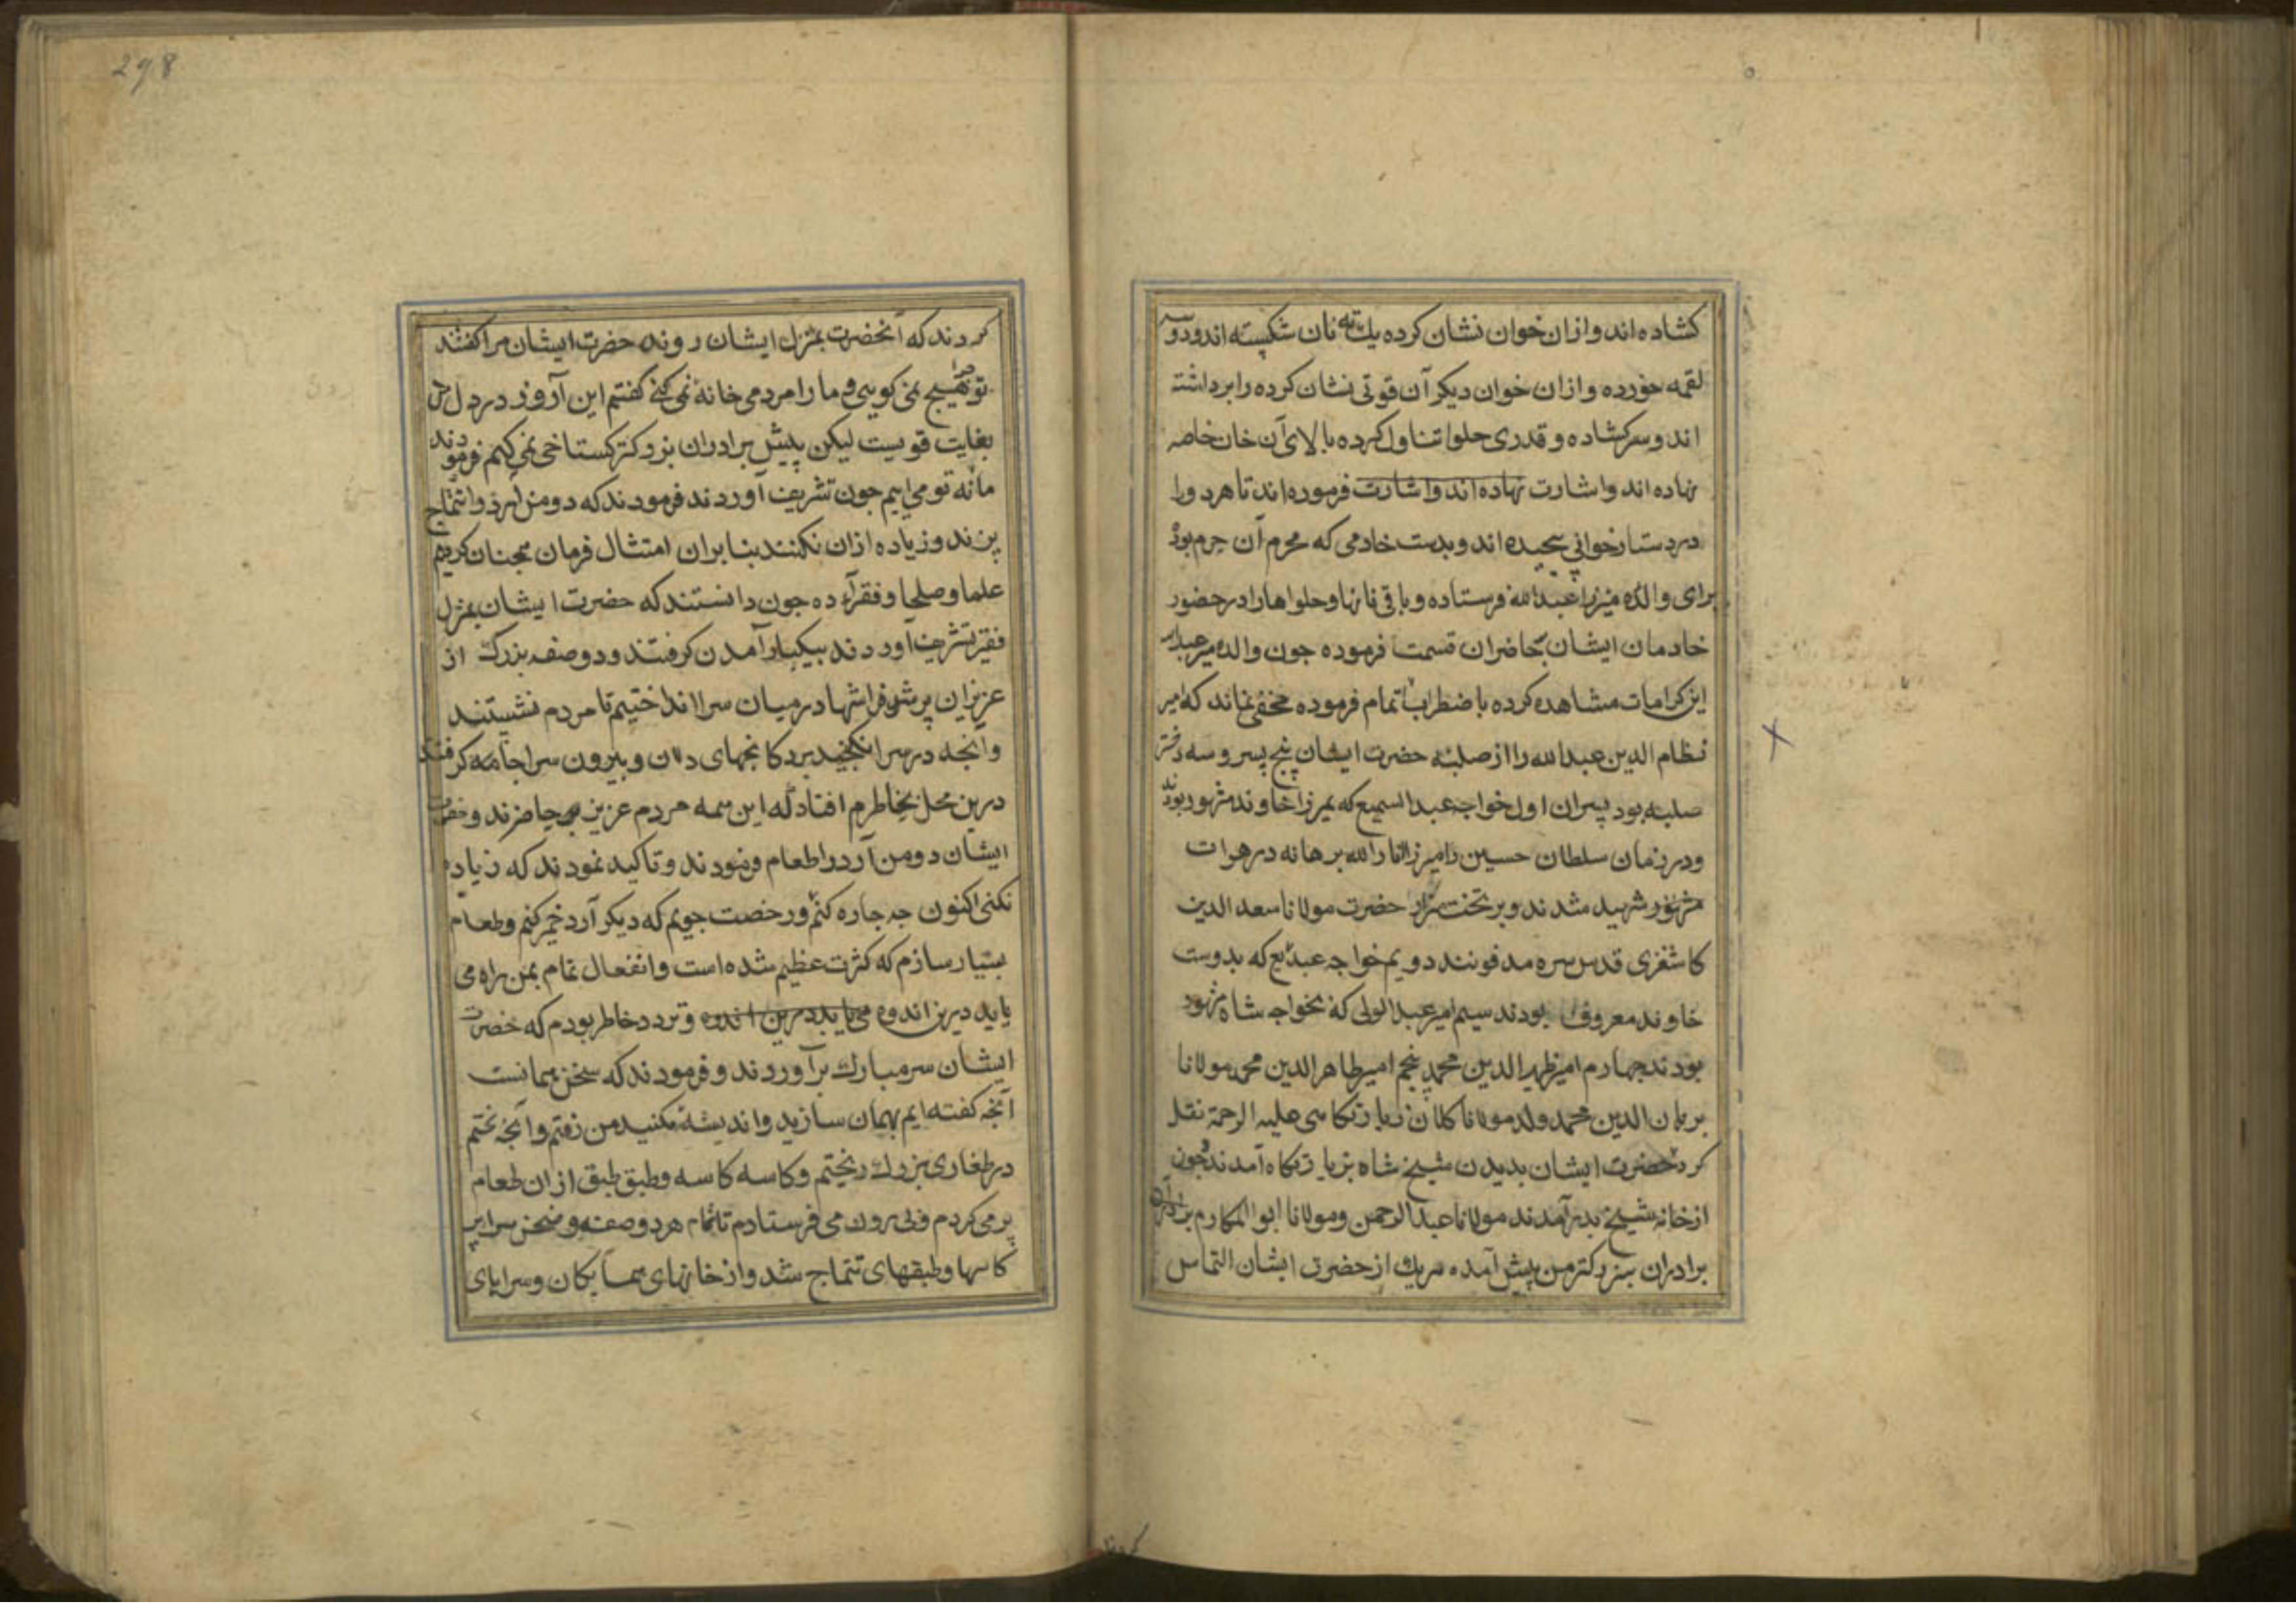 کشاده اند و ازان خوان نشان کرده یك ته نان شکسته اند و دو سه
لقمه خورده و ازان خوان دیکر آن قوتی نشان کرده را برداشته
اند و سر کشاده و قدری حلوا تناول کرده بالای آن خان خاصه
نهاده اند و اشارت نهاده اند و اشارت فرموده اند تا هر دو را
در دستارخوانی پیچیده اند و بدست خادمی که محرم آن حرم بود
برای والده میرزا عبدالله فرستاده و باقی نانها و حلواها را در حضور
خادمان ایشان بحاضران قسمت فرموده جون والده میر عبدالله
این کرامات مشاهده کرده باضطراب تمام فرموده مخفی نماند که امیر
نظام الدین عبدالله را از صلبیه حضرت ایشان پنج پسر و سه دختر
صلبیه بود پسران اول خواجه عبدالسمیع که بمیرزا خاوند مشهور بود
و در زمان سلطان حسین میرزا انار الله برهانه در هرات
مشهور شهید شدند و بر تخت مزار حضرت مولانا سعد الدین
کاشغری قدس سره مدفونند دویم خواجه عبدیع که بدوست
خاوند معروف بودند سیم امیر عبدالولی که بخواجه شاه مشهود
بودند جهارم امیر ظهیر الدین محمد پنجم امیر طاهر الدین محمد مولانا
برهان الدین محمد ولد مولانا کلان زیارتکاهی علیه الرحمة نقل
کرد حضرت ایشان بدیدن شیخ شاه بزیارتکاه آمدند و جون
از خانه شیخ بدر آمدند مولانا عبدالرحمن و مولانا ابوالمکارم برادران
برادران بزرکتر من پیش آمده هریك از حضرت ایشان التماس
کردند که آنحضرت بمنزل ایشان روند حضرت ایشان مرا کفتند
تو چرا هیچ نمی کویی و ما را مردمی خانهٔ نمی کنی کفتم این آرزو در دل من
بغایت قویست لیکن پیش برادران بزرکتر کستاخی نمی کنم فرمودند
ما بخانه تو می آییم جون تشریف آوردند فرمودند که دو من آرد را تتماج
پزند و زیاده ازان نکنند بنابران امتثال فرمان همجنان کردیم
علما و صلحا و فقرآء ده جون دانستند که حضرت ایشان بمنزل
فقیر تشریف آوردند بیکبار آمدن کرفتند و دو صفه بزرك از
عزیزان پر شد فراشها در میان سرا انداختیم تا مردم نشستند
و آنجه در سرا نکنجید بر دکانجهای دالان و بیرون سرا جامه کرفتند
درین محل بخاطرم افتاد که این همه مردم عزیز حاضرند و حضرت
ایشان دو من آرد را طعام فرمودند و تاکید نمودند که زیاده
نکنی اکنون جه جاره کنم و رخصت جویم که دیکر آرد خمیر کنم و طعام
بسیار سازم که کثرت عظیم شده است و انفعال تمام بمن راه می
یابد درین اندوه می یابد درین اندوه و تردد خاطر بودم که حضرت
ایشان سر مبارك برآوردند و فرمودند که سخن همانست
آنجه کفته ایم بهمان سازید و اندیشه مکنید من رفتم و آنجه پختم
در طغاری بزرك ریختم و کاسه کاسه و طبق طبق ازان طعام
پر می کردم و بیرون می فرستادم تا تمام هر دو صفه و صحن سرا پر
کاسها و طبقهای تتماج شد و از خانهای همسایکان و سراهای
298